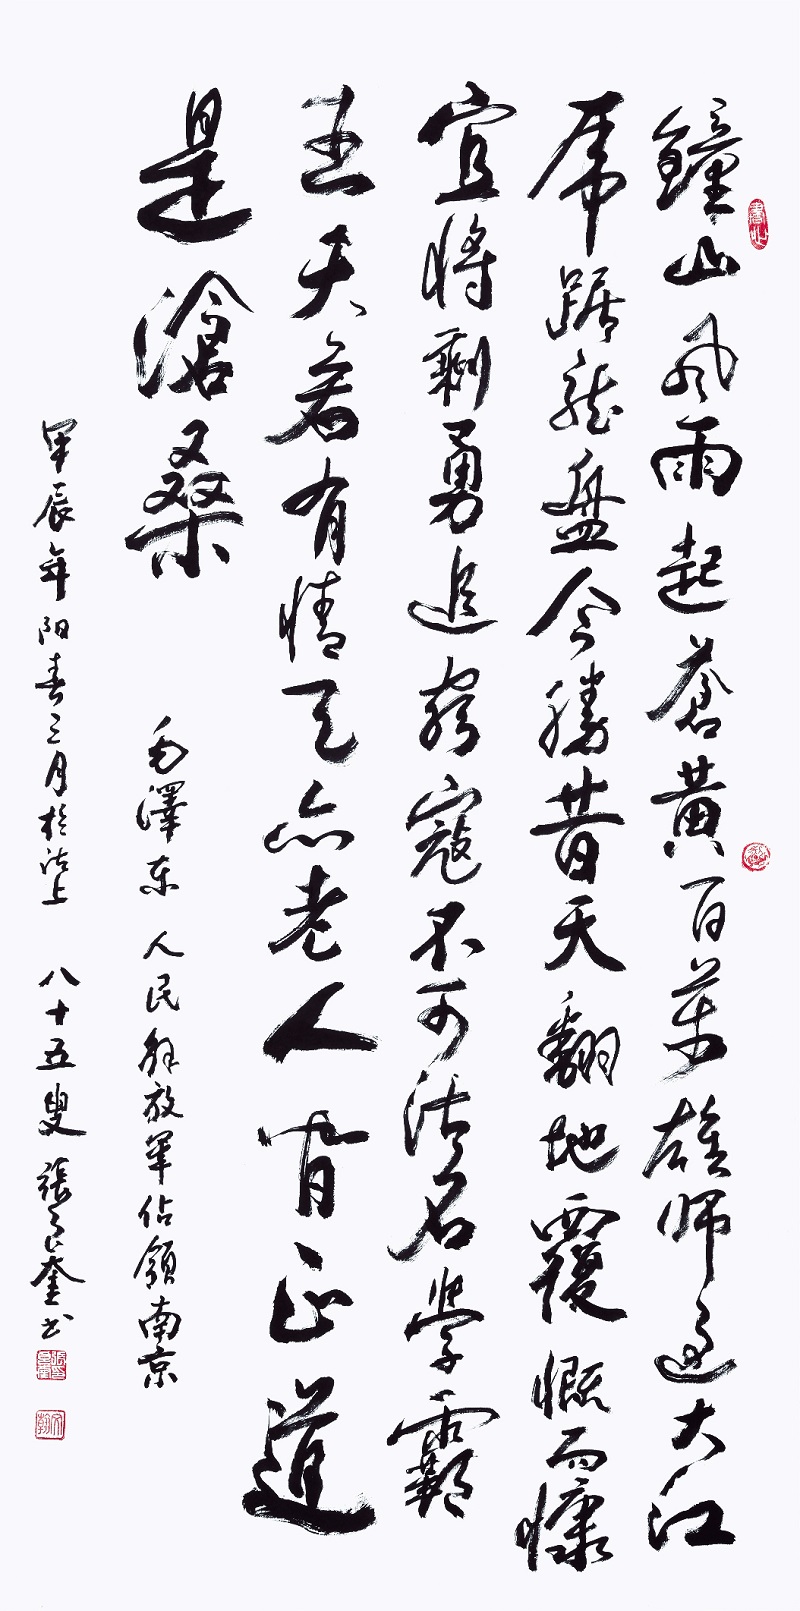 鐘山風雨起蒼黃百萬雄師過大江
虎踞龍盤今勝昔天翻地覆慨而慷
宜將剩勇追窮寇不可沽名學霸
王天若有情天亦老人間正道
是滄桑
毛澤东 人民解放軍佔領南京
甲辰年阳春三月於沽上 八十五叟 張良奎书